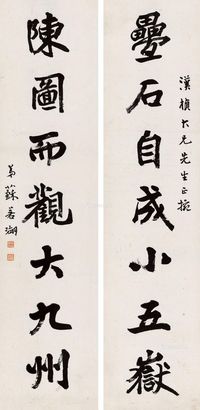 漢楨大兄先生正掾
疊石自成小五嶽
陳圖而觀大九州
弟蘇若瑚